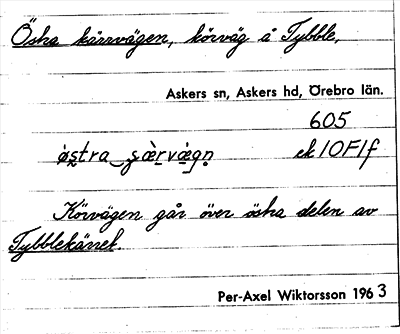 Östra kärrvägen, körväg å Tybble,
Askers sn, Askers hd, Örebro län.
605
ek 10F1f
Körvägen går över östra delen av
Tybblekärret.
Per-Axel Wiktorsson 1963